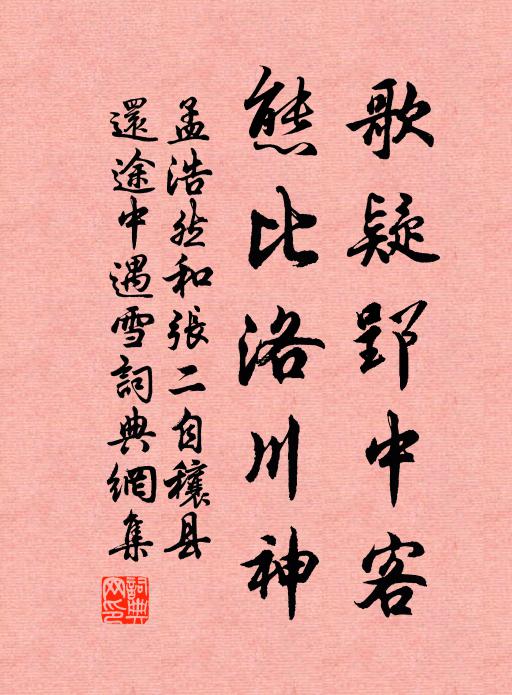 歌疑郢中客
態比洛川神
孟浩然和張二自穰县
還途中遇雪詞典網集
詞典
网印